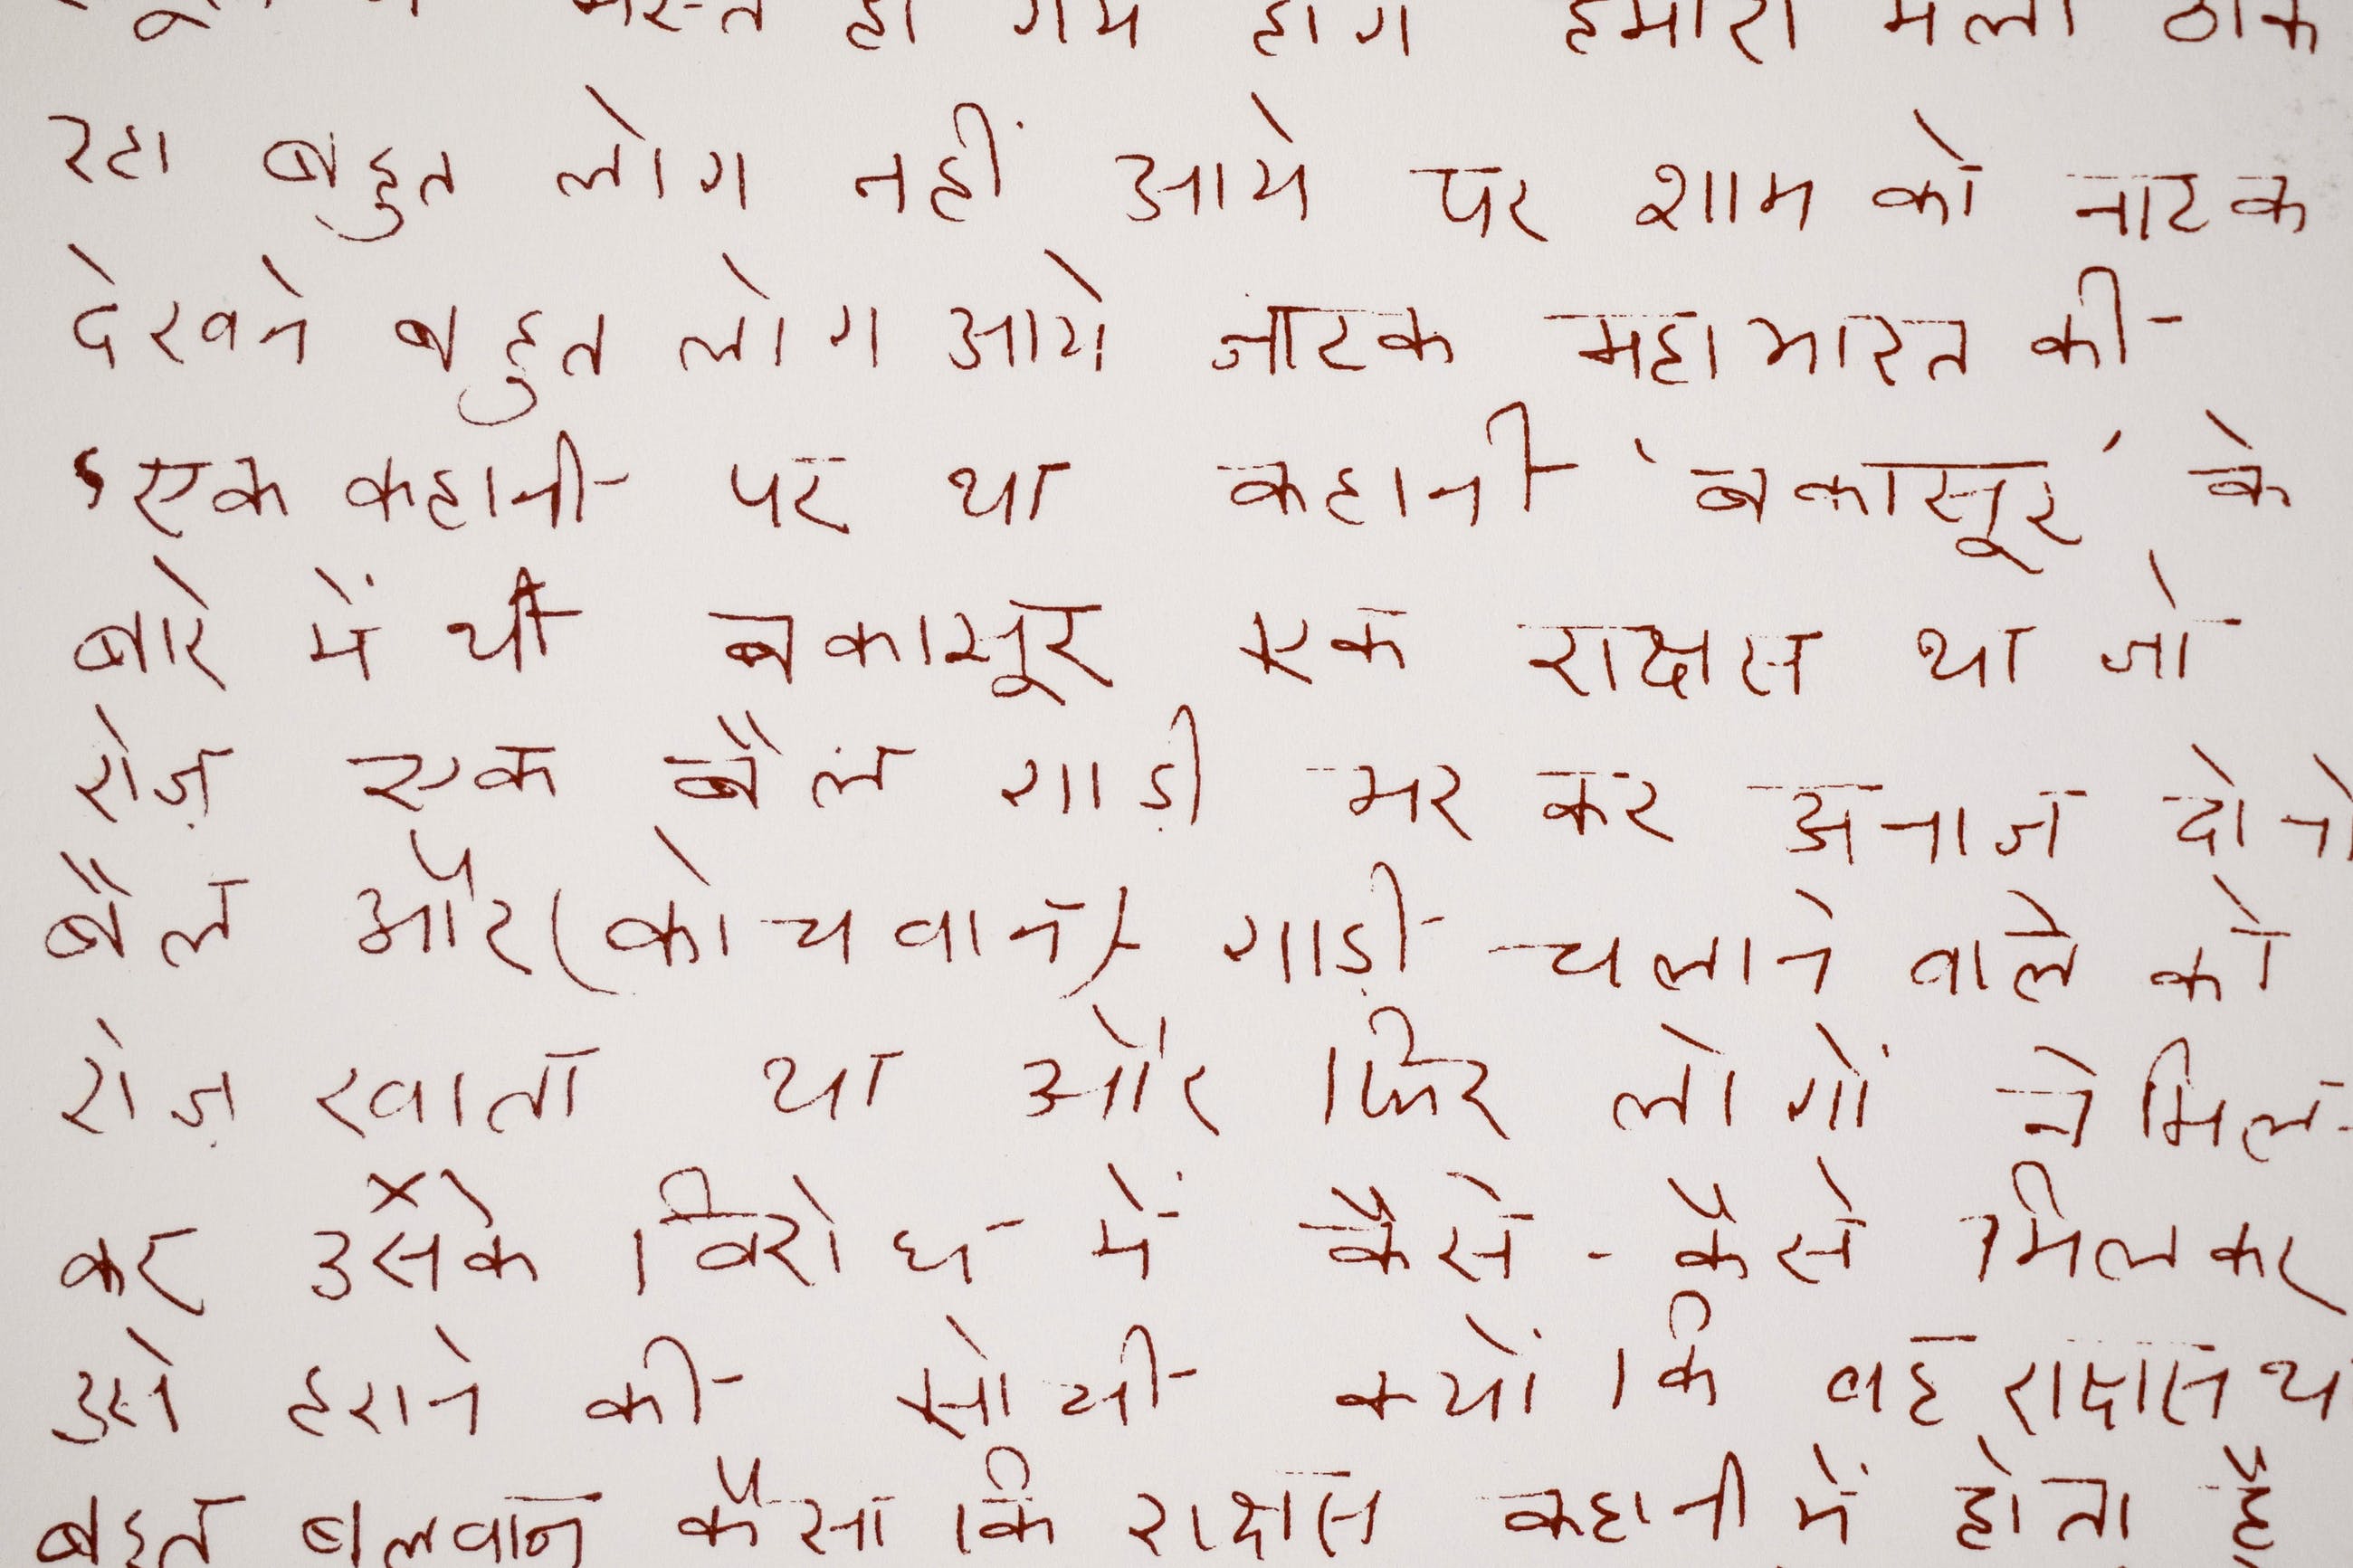 हो गये होंगे हमारा मेला ठीक
रहा बहुत लोग नहीं आये पर शाम को नाटक
देखने बहुत लोग आये नाटक महाभारत की
एक कहानी पर था कहानी 'बकासूर' के
बारे में थी बकासूर एक राक्षस था जो
रोज़ एक बैल गाड़ी भर कर अनाज दोनो
बैल और (कोचवान) गाड़ी चलाने वाले को
रोज़ खाता था और फिर लोगों ने मिल-
कर उसके विरोध में कैसे - कैसे मिलकर
उसे हराने की सोची क्यों कि वह राक्षस था
बहुत बलवान कैसा कि राक्षस कहानी में होता है